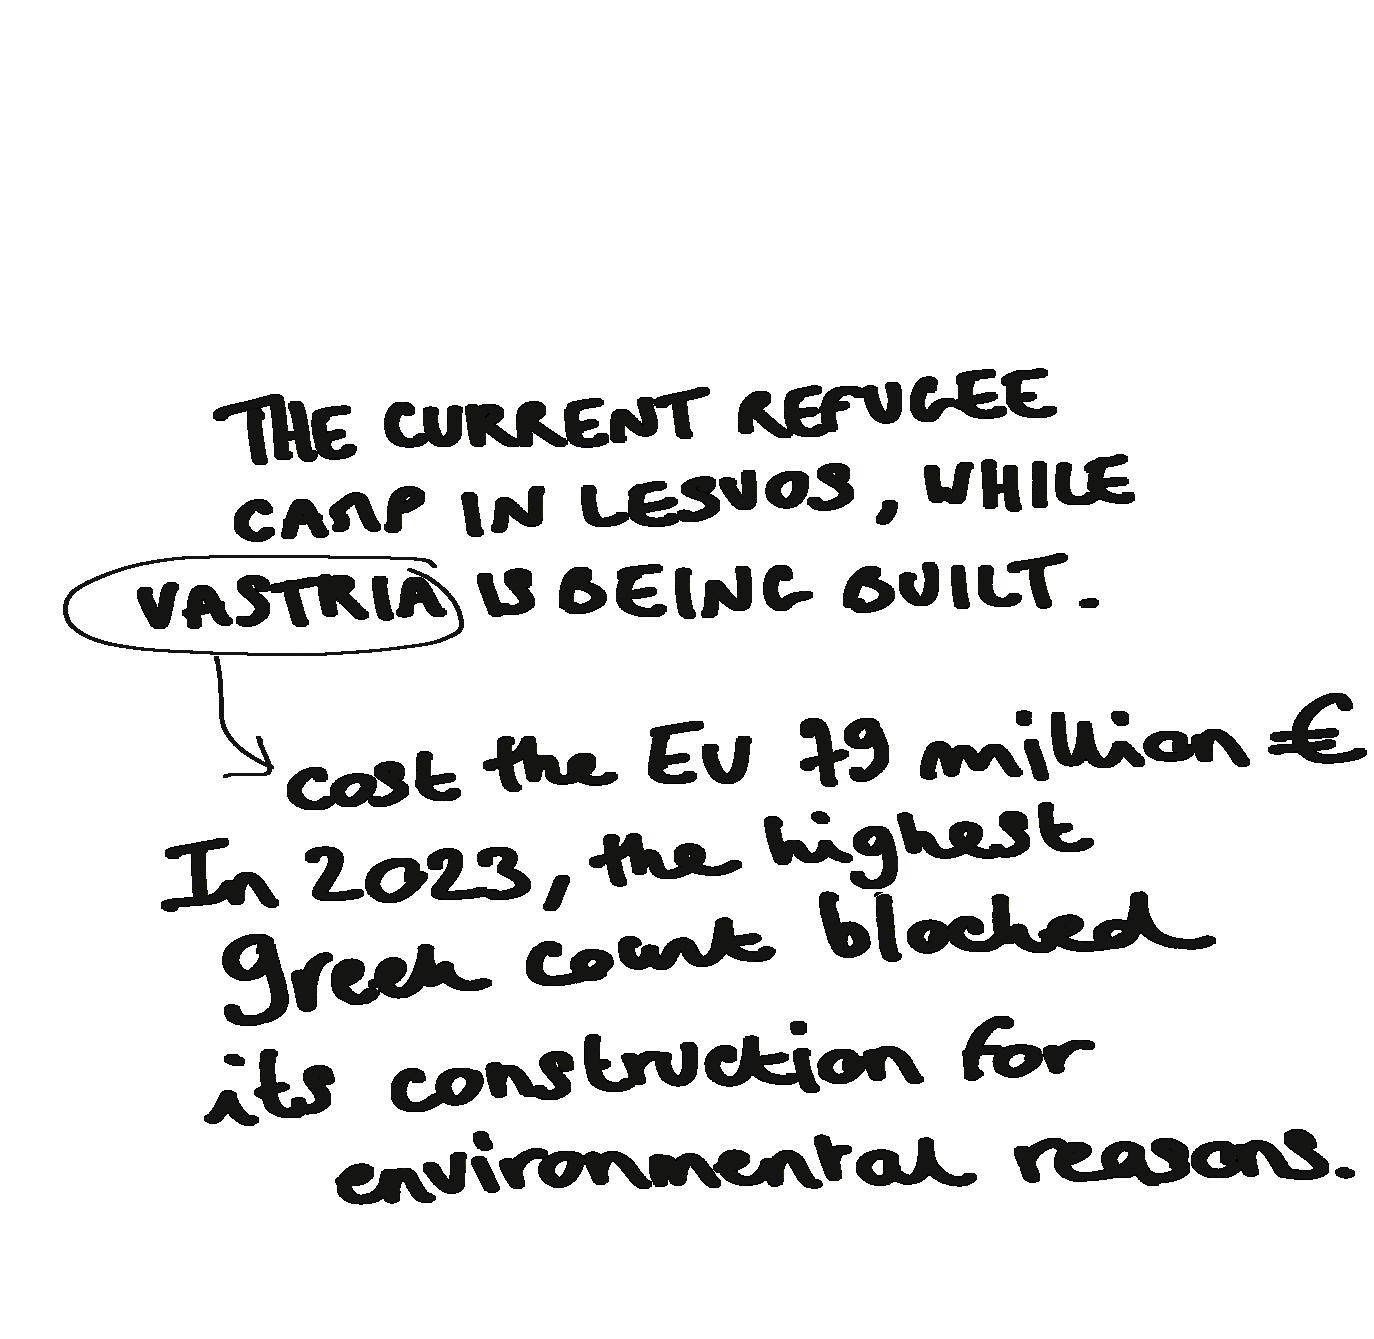 THE CURRENT REFUGEE
CAMP IN LESVOS, WHILE
VASTRIA IS BEING BUILT.
cost the EU 79 million €
In 2023, the highest
greek court blocked
its construction for
environmental reasons.